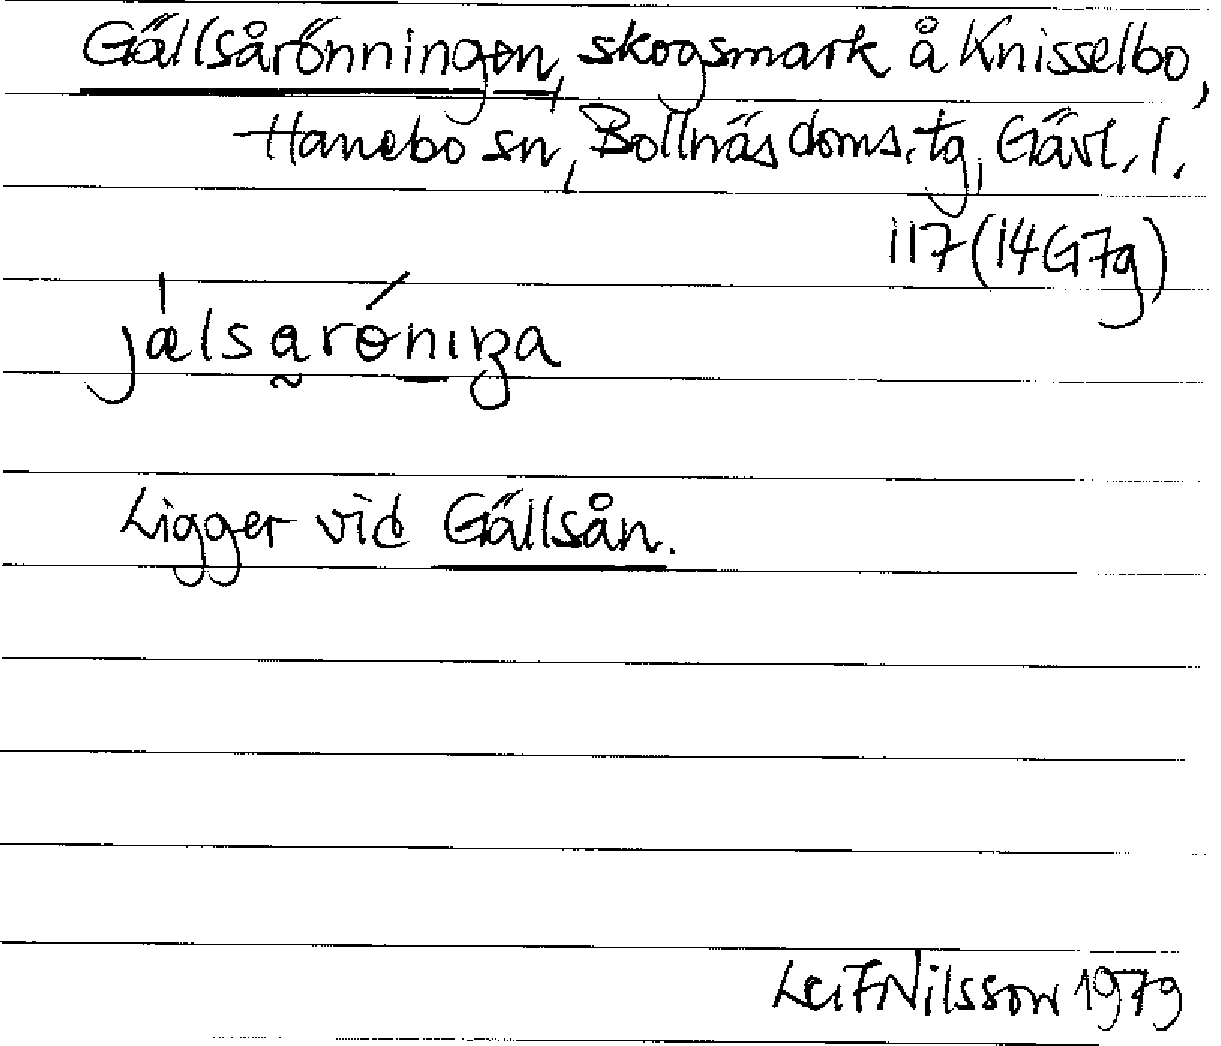 Gällsårönningen, skogsmark å Knisselbo,
Hanebo sn, Bollnäs doms. tg, Gävl. l.
117 (14G7g)
jælsarøniŋa
Ligger vid Gällsån.
Leif Nilsson 1979